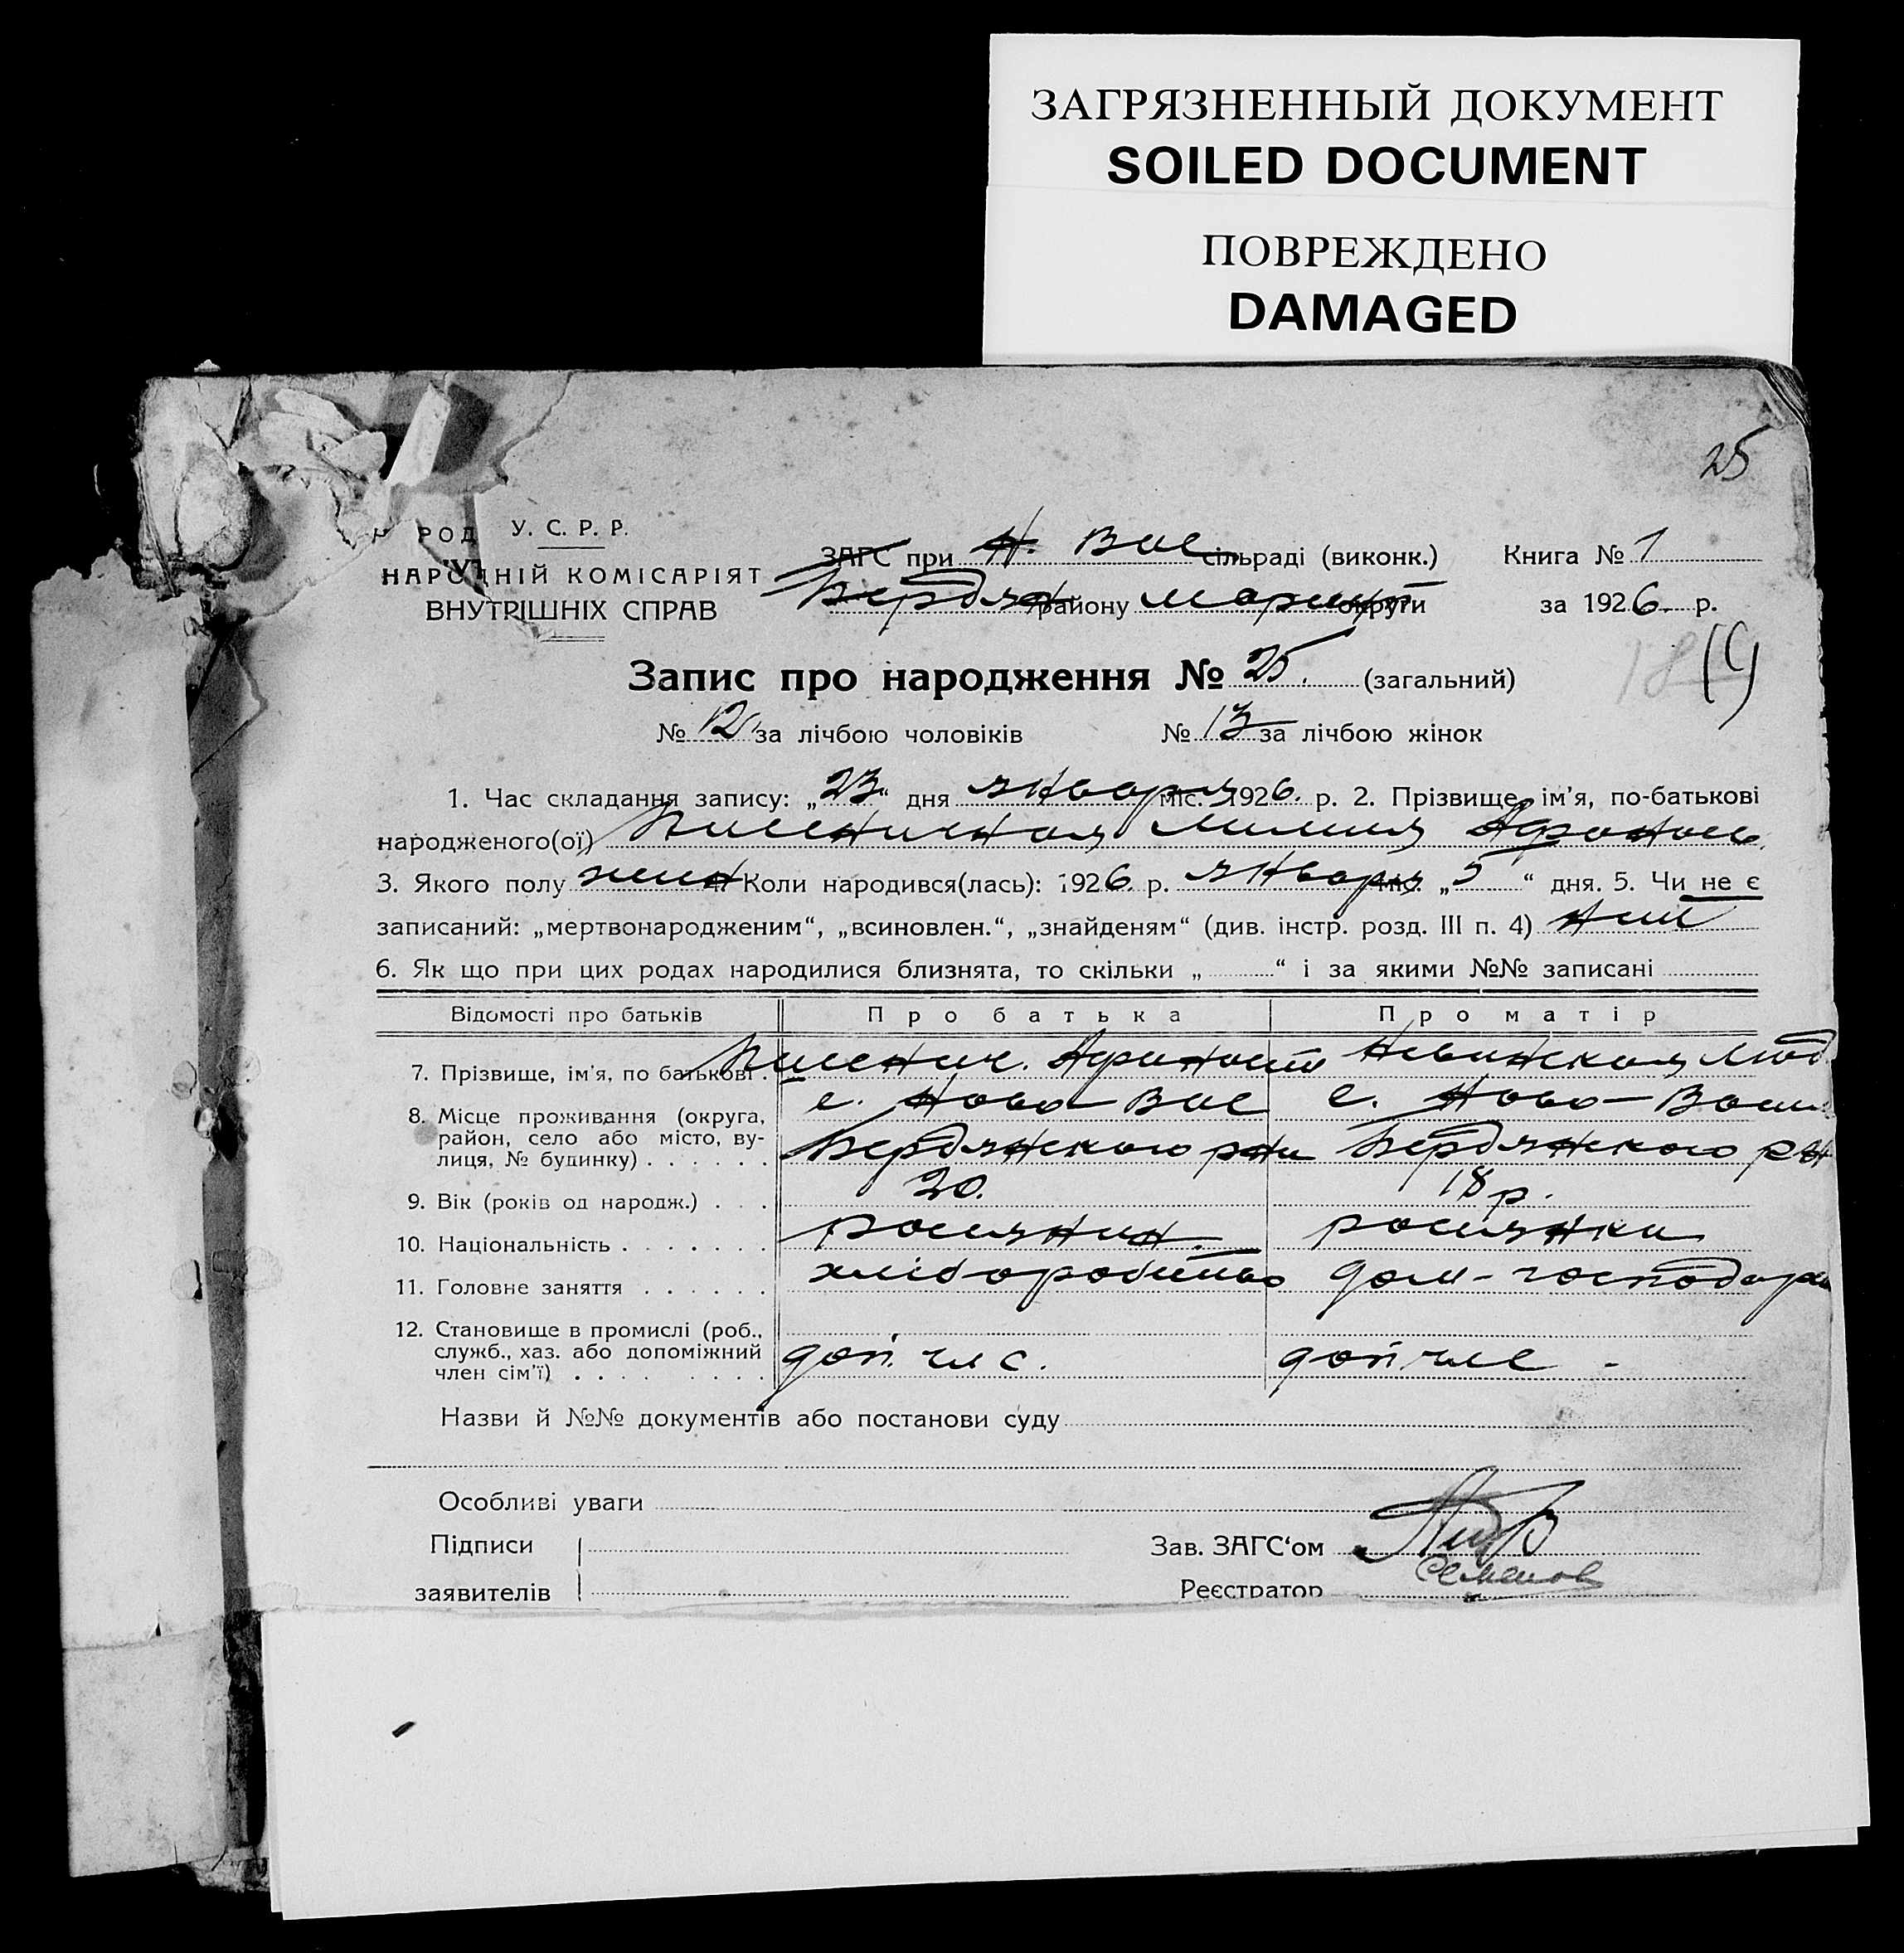 ЗАГРЯЗНЕННЫЙ ДОКУМЕНТ
SOILED DOCUMENT
ПОВРЕЖДЕНО
DAMAGED
25
У. С. Р. Р.
НАРОДНІЙ КОМІСАРІЯТ
ВНУТРІШНІХ СПРАВ
ЗАГС при Н. Вас сільраді (виконк.) Книга № 1
Бердян району Мариуп округи за 1926 р.
Запис про народження № 25. (загальний)
18 (19)
№ 12 за лічбою чоловіків № 13 за лічбою жінок
1. Час складання запису: „23“ дня января міс. 1926. р. 2. Прізвище, ім'я, по-батькові
народженого(ої)
3. Якого полу жин 4. Коли народився(лась): 1926 р. января міс. „5“ дня. 5. Чи не є
записаний: „мертвонародженим“, „всиновлен.“, „знайденям“ (див. інстр. розд. III п. 4)
6. Як що при цих родах народилися близнята, то скільки „ “ і за якими №№ записані
Відомості про батьків Про батька Про матір
7. Прізвище, ім'я, по батькові.
8. Місце проживання (округа, район, село або місто, вулиця, № будинку) с. Ново-Вас Бердянского рна с. Ново-Васил Бердянского рн
9. Вік (років од народж.) 20. 18 р.
10. Національність росиянин. росиянка
11. Головне заняття хліборобство дом-господар
12. Становище в промислі (роб., служб., хаз. або допоміжний член сім'ї) доп. чл с. доп. чл с
Назви й №№ документів або постанови суду
Особливі уваги
Підписи
заявителів
Зав. ЗАГС'ом
Реєстратор